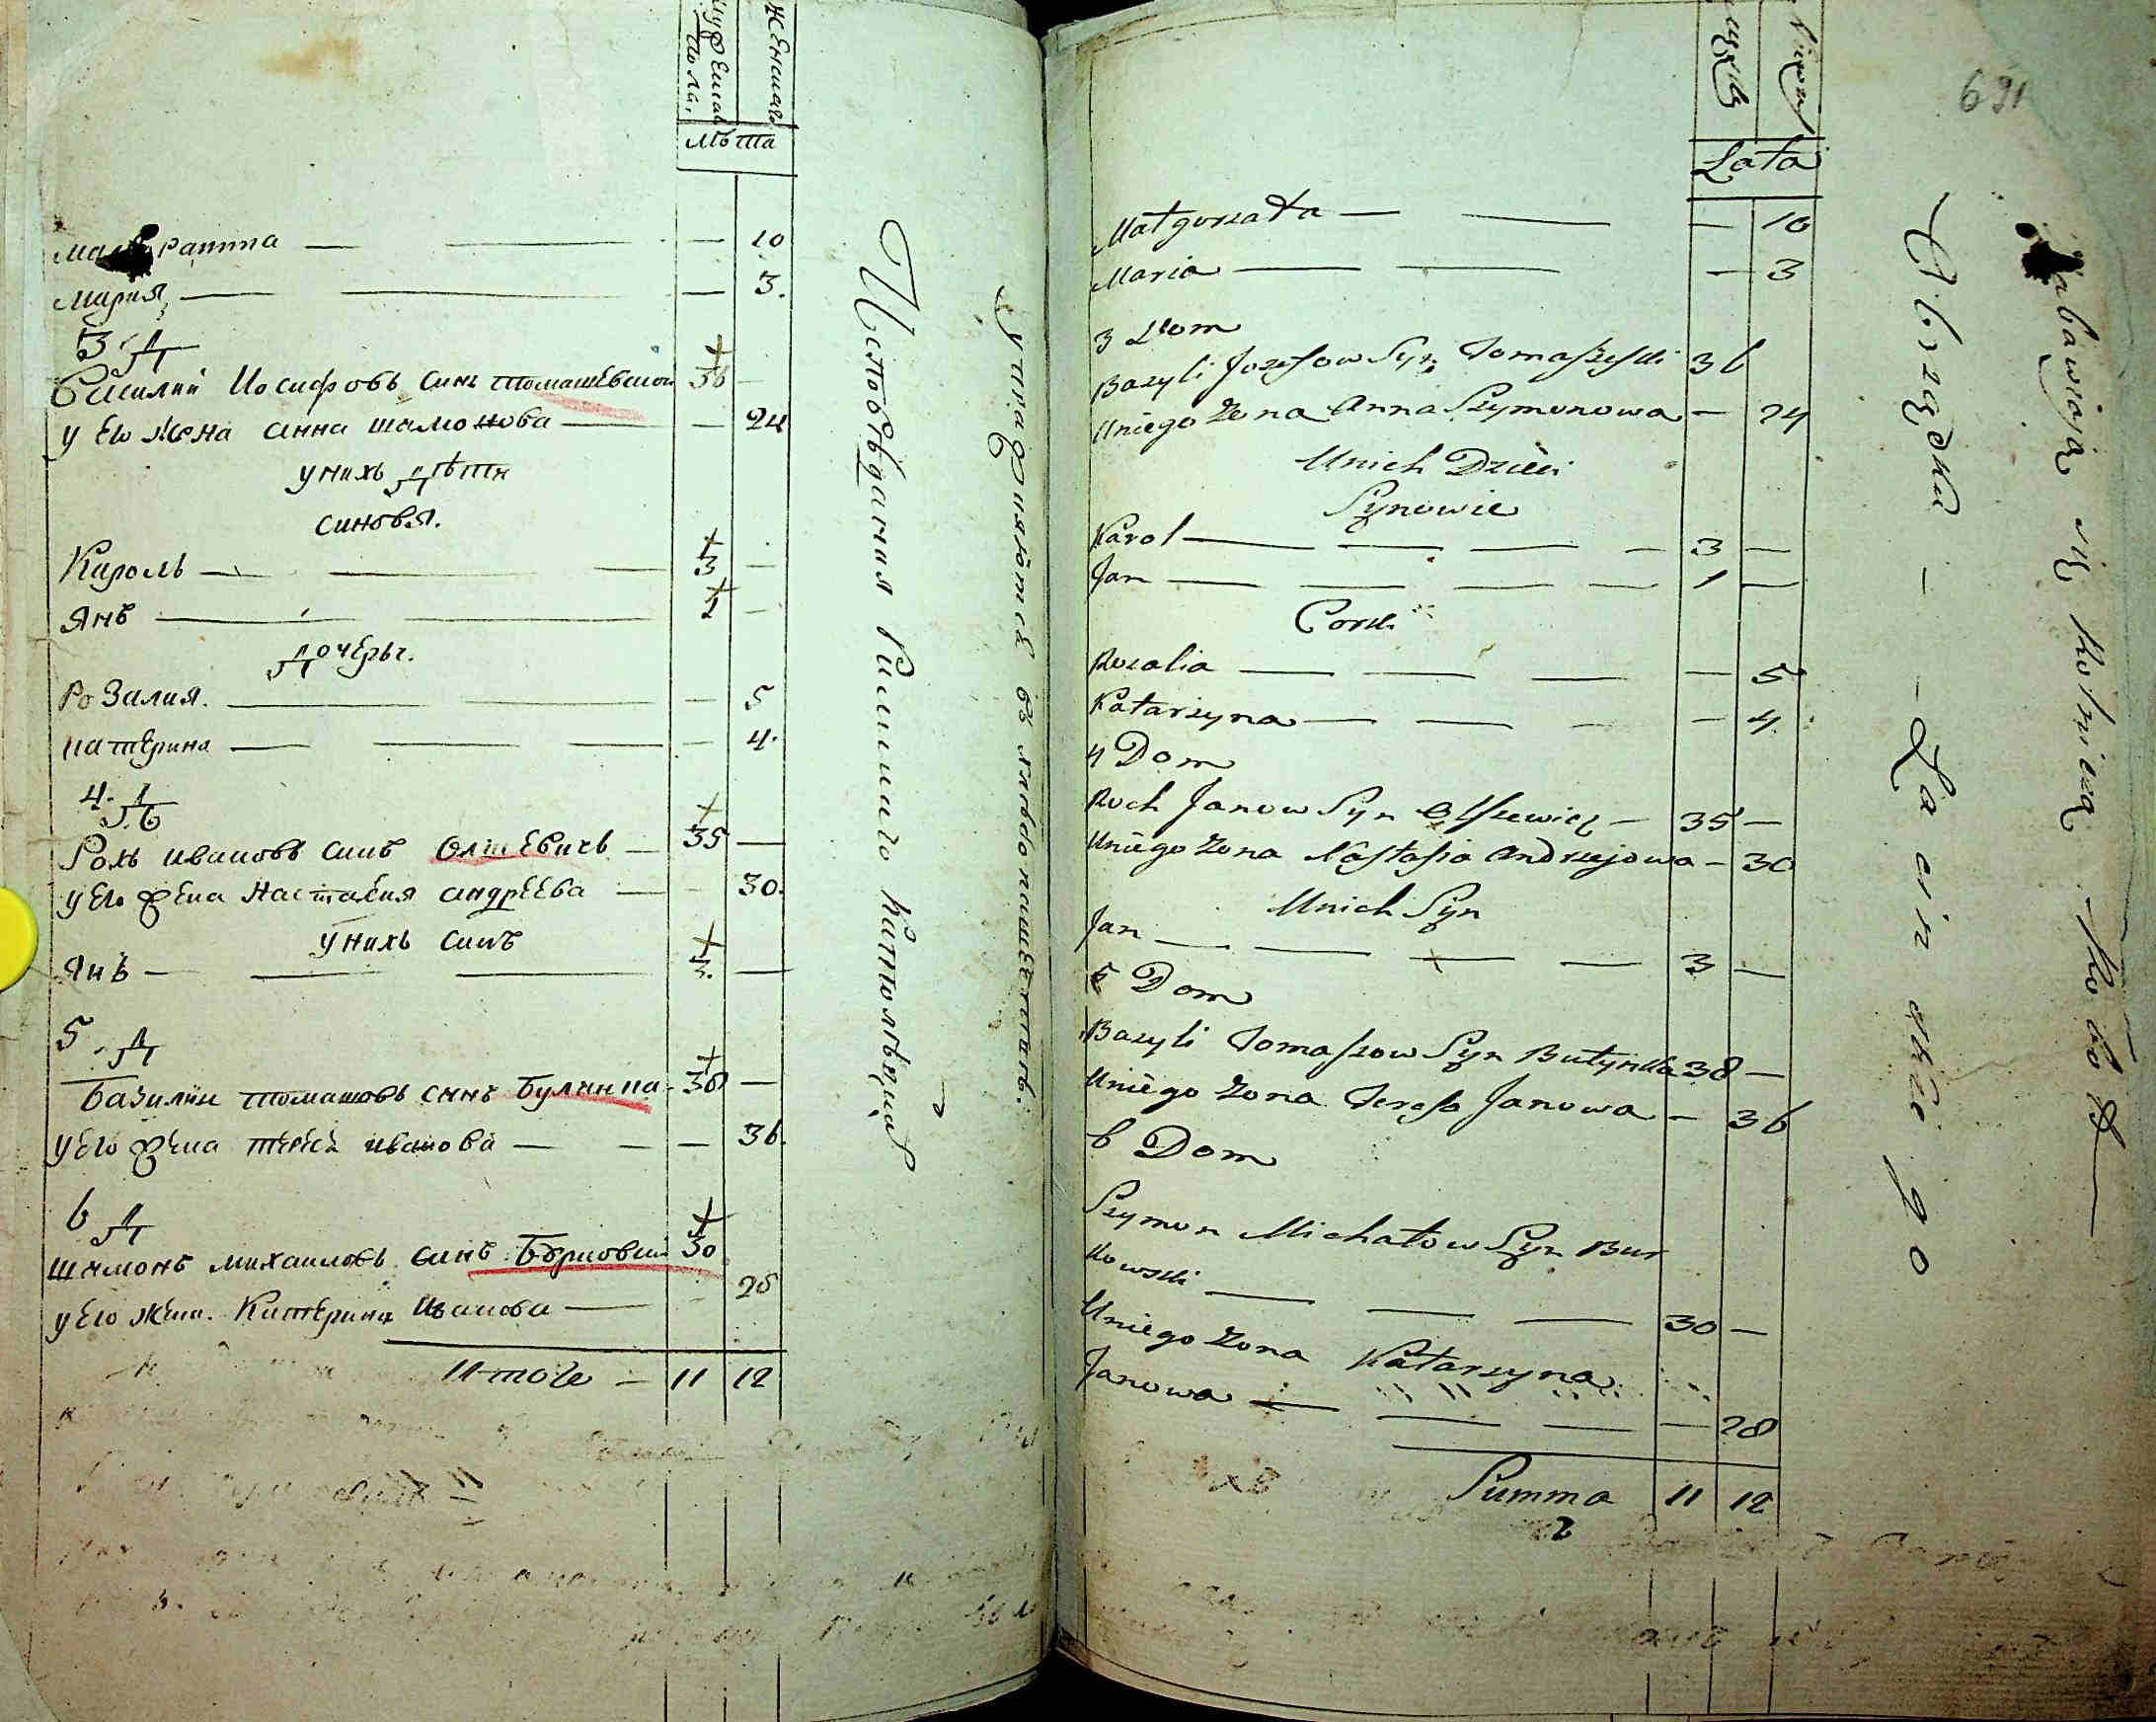 женска
лѣта
Мария — — — 3.
3 Д
Василий Иосифовъ синъ Томашевски 36 —
у его жена анна шимонова — — 24
у нихъ дѣти
синовя.
Кароль — — — 3 —
Янъ — — 1 —
дочеры.
Розалия. — — — 5
катерина — — — — 4.
4. Д
Рохъ ивановъ синъ Олшевичъ — 35 —
у его жена Настасия андреева — — 30.
у нихъ синъ
Янъ — — — 3. —
5 Д
Базилии томашовъ синъ Булинка 38 —
у его жена тереса иванова — — — 36.
6 Д
шимонъ михаиловъ синъ Бурковски 30
у его жена. Катерина Иванова — 28
Итого — 11 12
Исповѣдания Римского Католѣцкий
упражняются въ хлѣбопашестве.
691
Lata
Małgorzata — — — 10
Maria — — — 3
3 Dom
Bazyli Jozefow Syn Tomaszeski 36
Uniego Zona Anna Szymonowa — 24
Unich Dzieci
Synowie
Karol — — — — 3 —
Jan — — — — 1 —
Corki
Rozalia — — — — 5
Katarzyna — — — — 4
4 Dom
Roch Janow Syn Olszewicz — 35 —
Uniego Zona Nastasia Andrzejowa — 30
Unich Syn
Jan — — — — 3 —
5 Dom
Bazyli Tomaszow Syn Butynka 38 —
Uniego Zona Teresa Janowa — 36
6 Dom
Szymon Michałow Syn Bur
kowski — — — 30 —
Uniego Zona Katarzyna
Janowa — — — — 28
Summa 11 12
Obrządku — — Łacinskiego
zabawiają się Rolniczą Robotą —